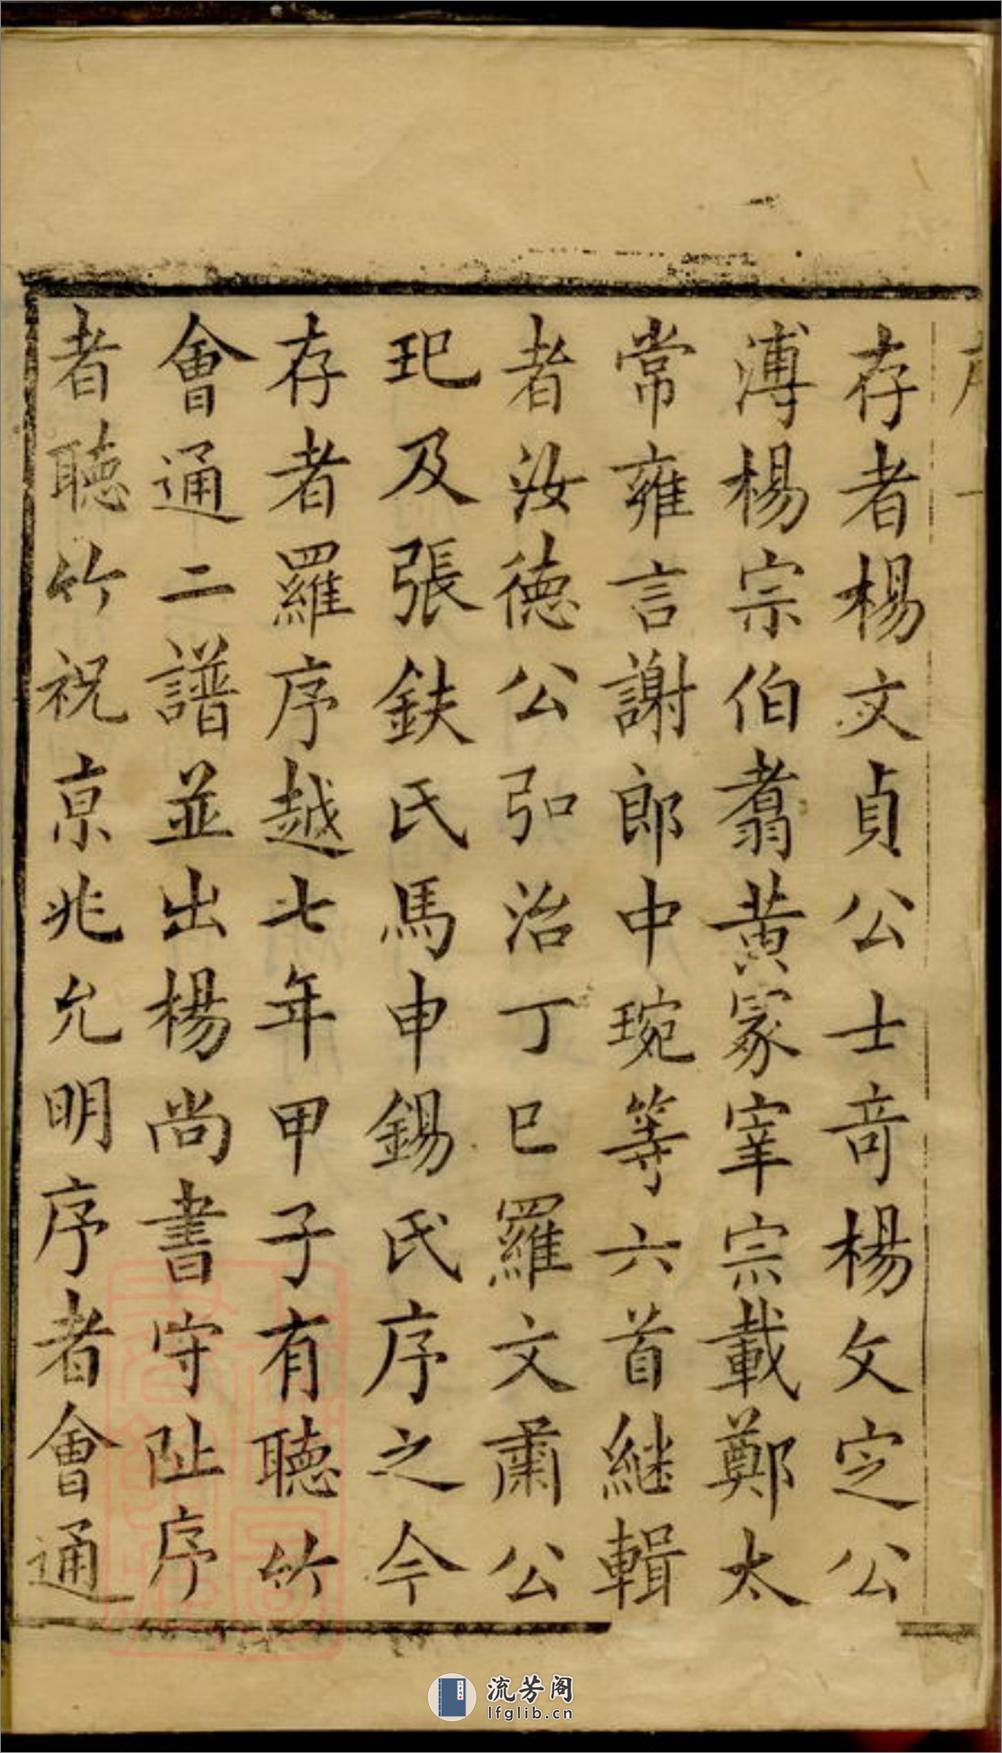 存者楊文貞公士奇楊文定公
溥楊宗伯翥黃冡宰宗載鄭太
常雍言謝郎中琬等六首繼輯
者汝德公弘治丁巳羅文肅公
玘及張鈇氏馬申錫氏序之今
存者羅序越七年甲子有聽竹
會通二譜並出楊尚書守阯序
者聽竹祝京兆允明序者會通
流芳阁
lfglib.cn